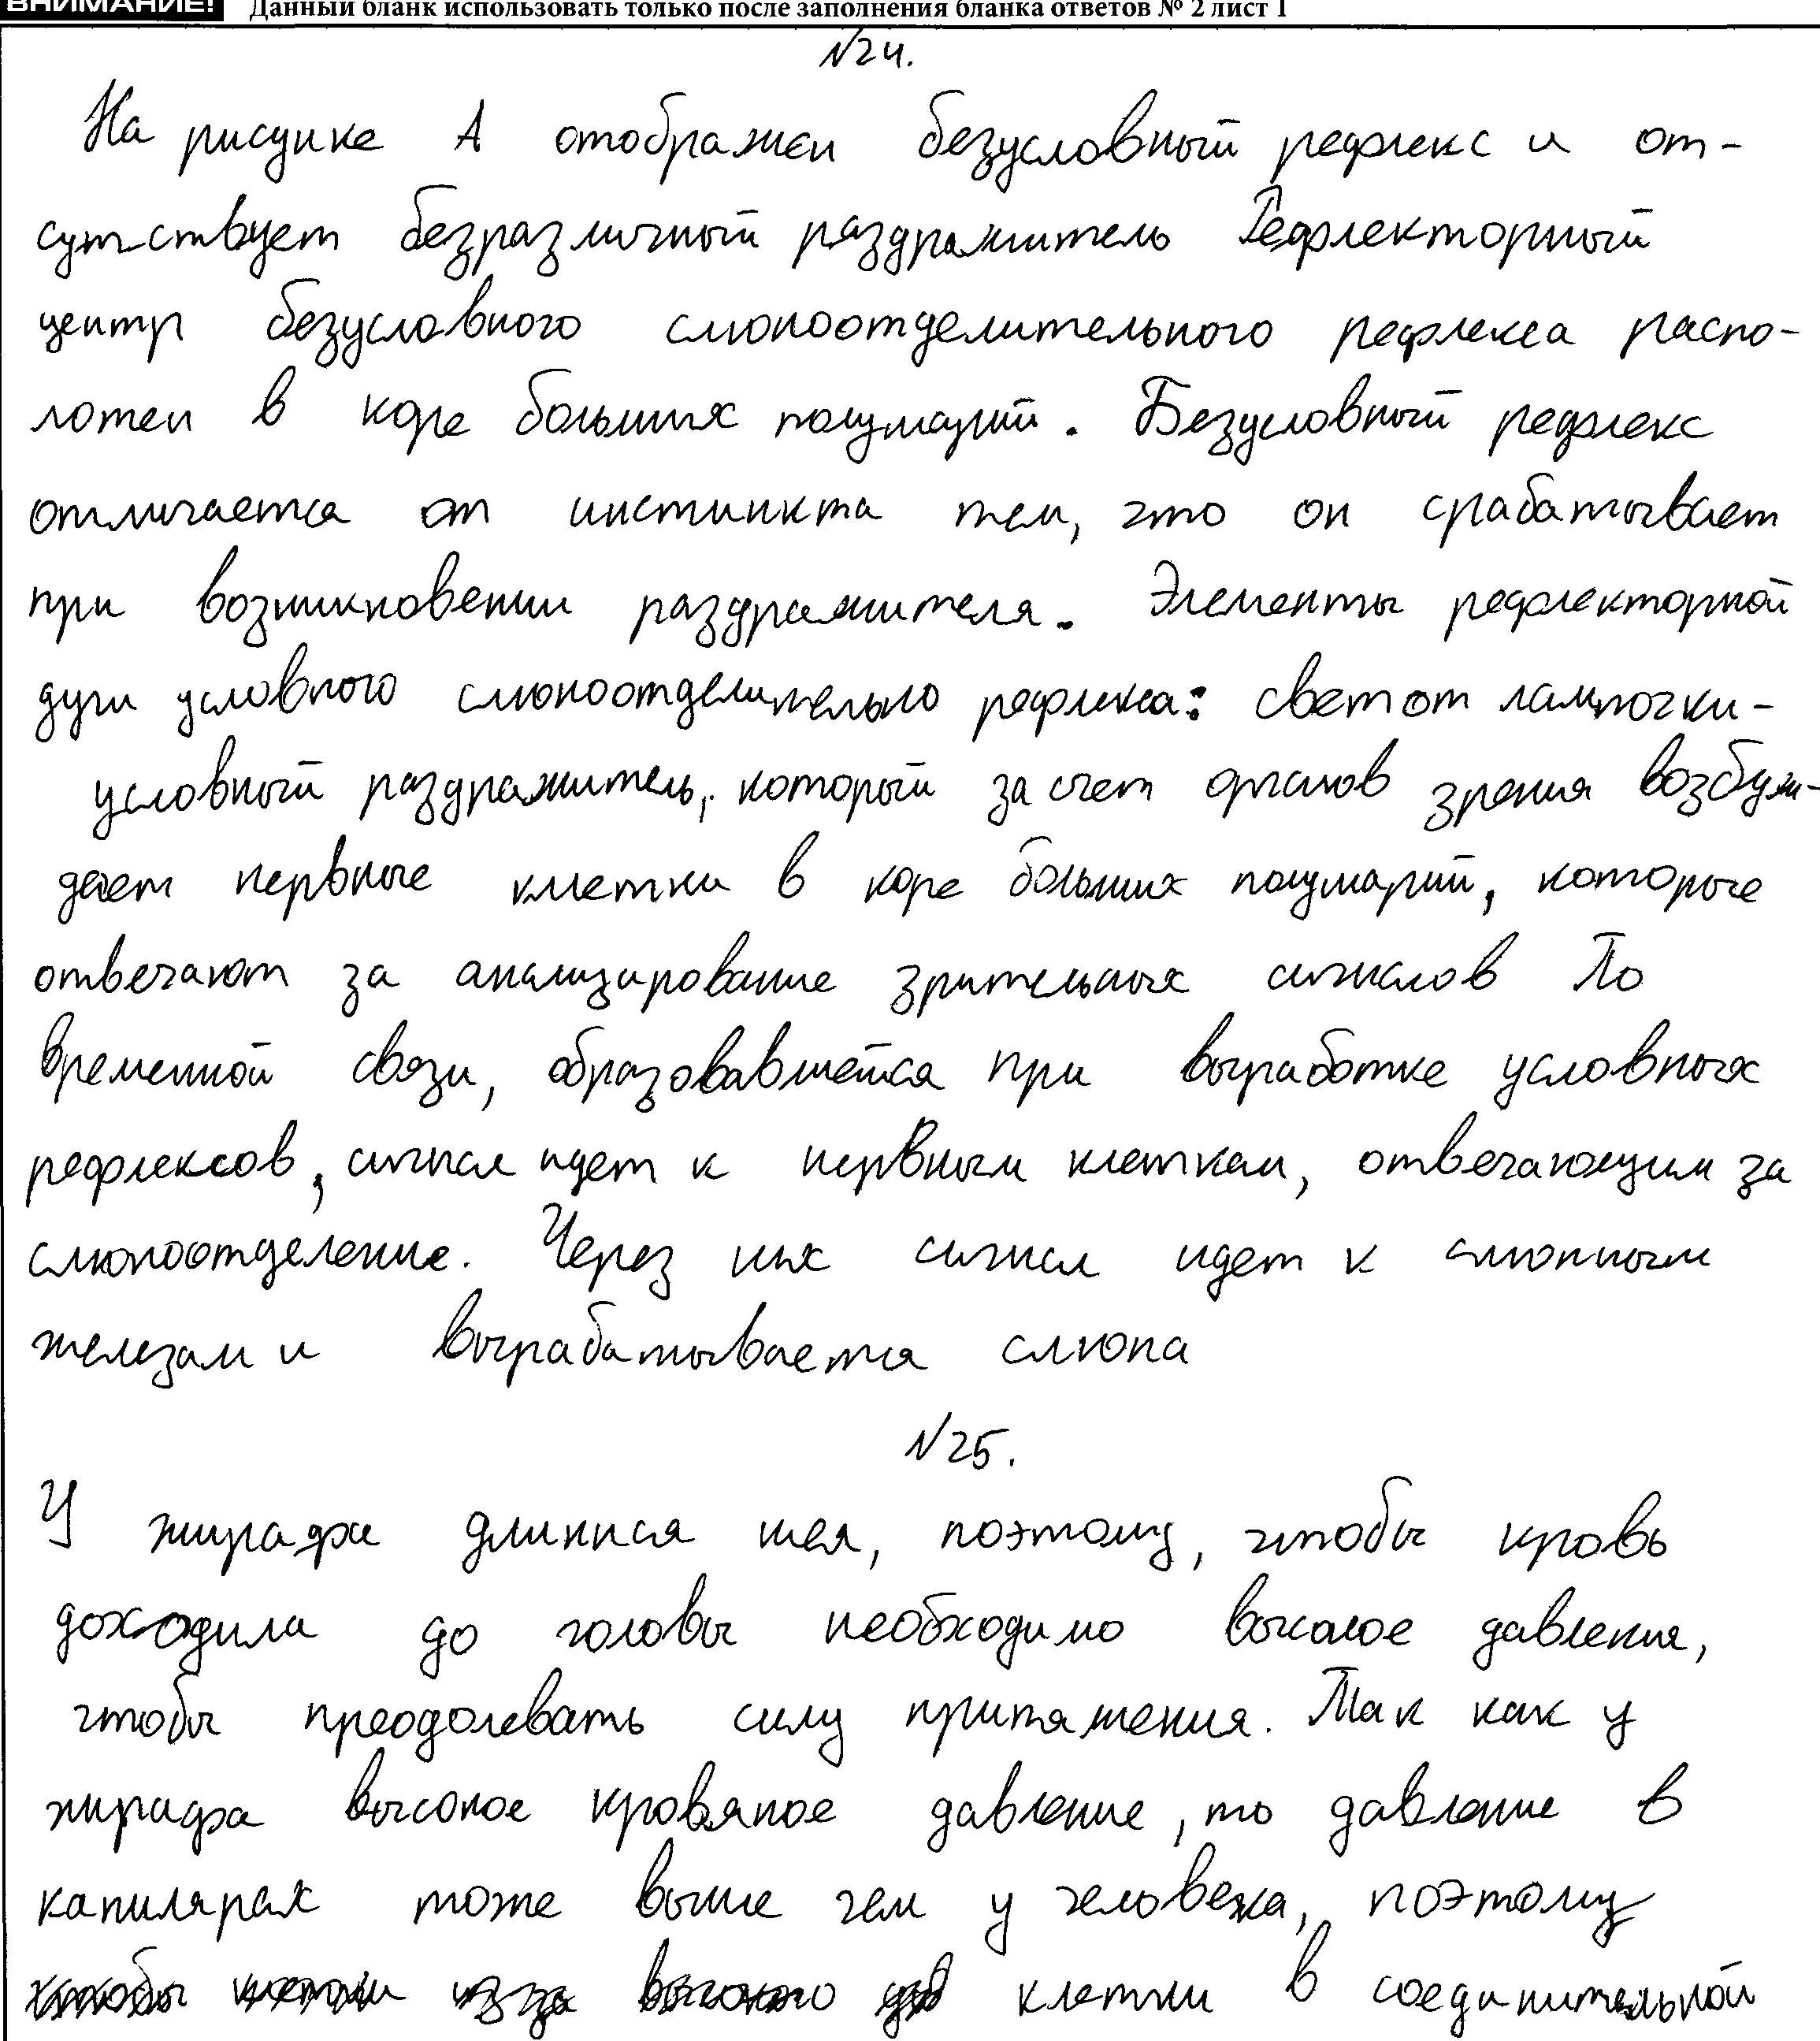 ВНИМАНИЕ! Данный бланк использовать только после заполнения бланка ответов № 2 лист 1
№24.
На рисунке А отображен безусловный рефлекс и от-
сутствует безразличный раздражитель Рефлекторный
центр безусловного слюноотделительного рефлекса распо-
ложен в коре больших полушарий. Безусловный рефлекс
отличается от инстинкта тем, что он срабатывает
при возникновении раздражителя. Элементы рефлекторной
дуги условного слюноотделительно рефлекса: свет от лампочки-
условный раздражитель, который за счет органов зрения возбуж-
дает нервные клетки в коре больших полушарий, которые
отвечают за анализирование зрительных сигналов По
временной связи, образовавшейся при выработке условных
рефлексов, сигнал идет к нервным клеткам, отвечающим за
слюноотделение. Через них сигнал идет к слюнным
железам и вырабатывается слюна
№25.
У жирафа длинная шея, поэтому, чтобы кровь
доходила до головы необходимо высокое давления,
чтобы преодолевать силу притяжения. Так как у
жирафа высокое кровяное давление, то давление в
капилярах тоже выше чем у человека, поэтому
клетки в соединительной